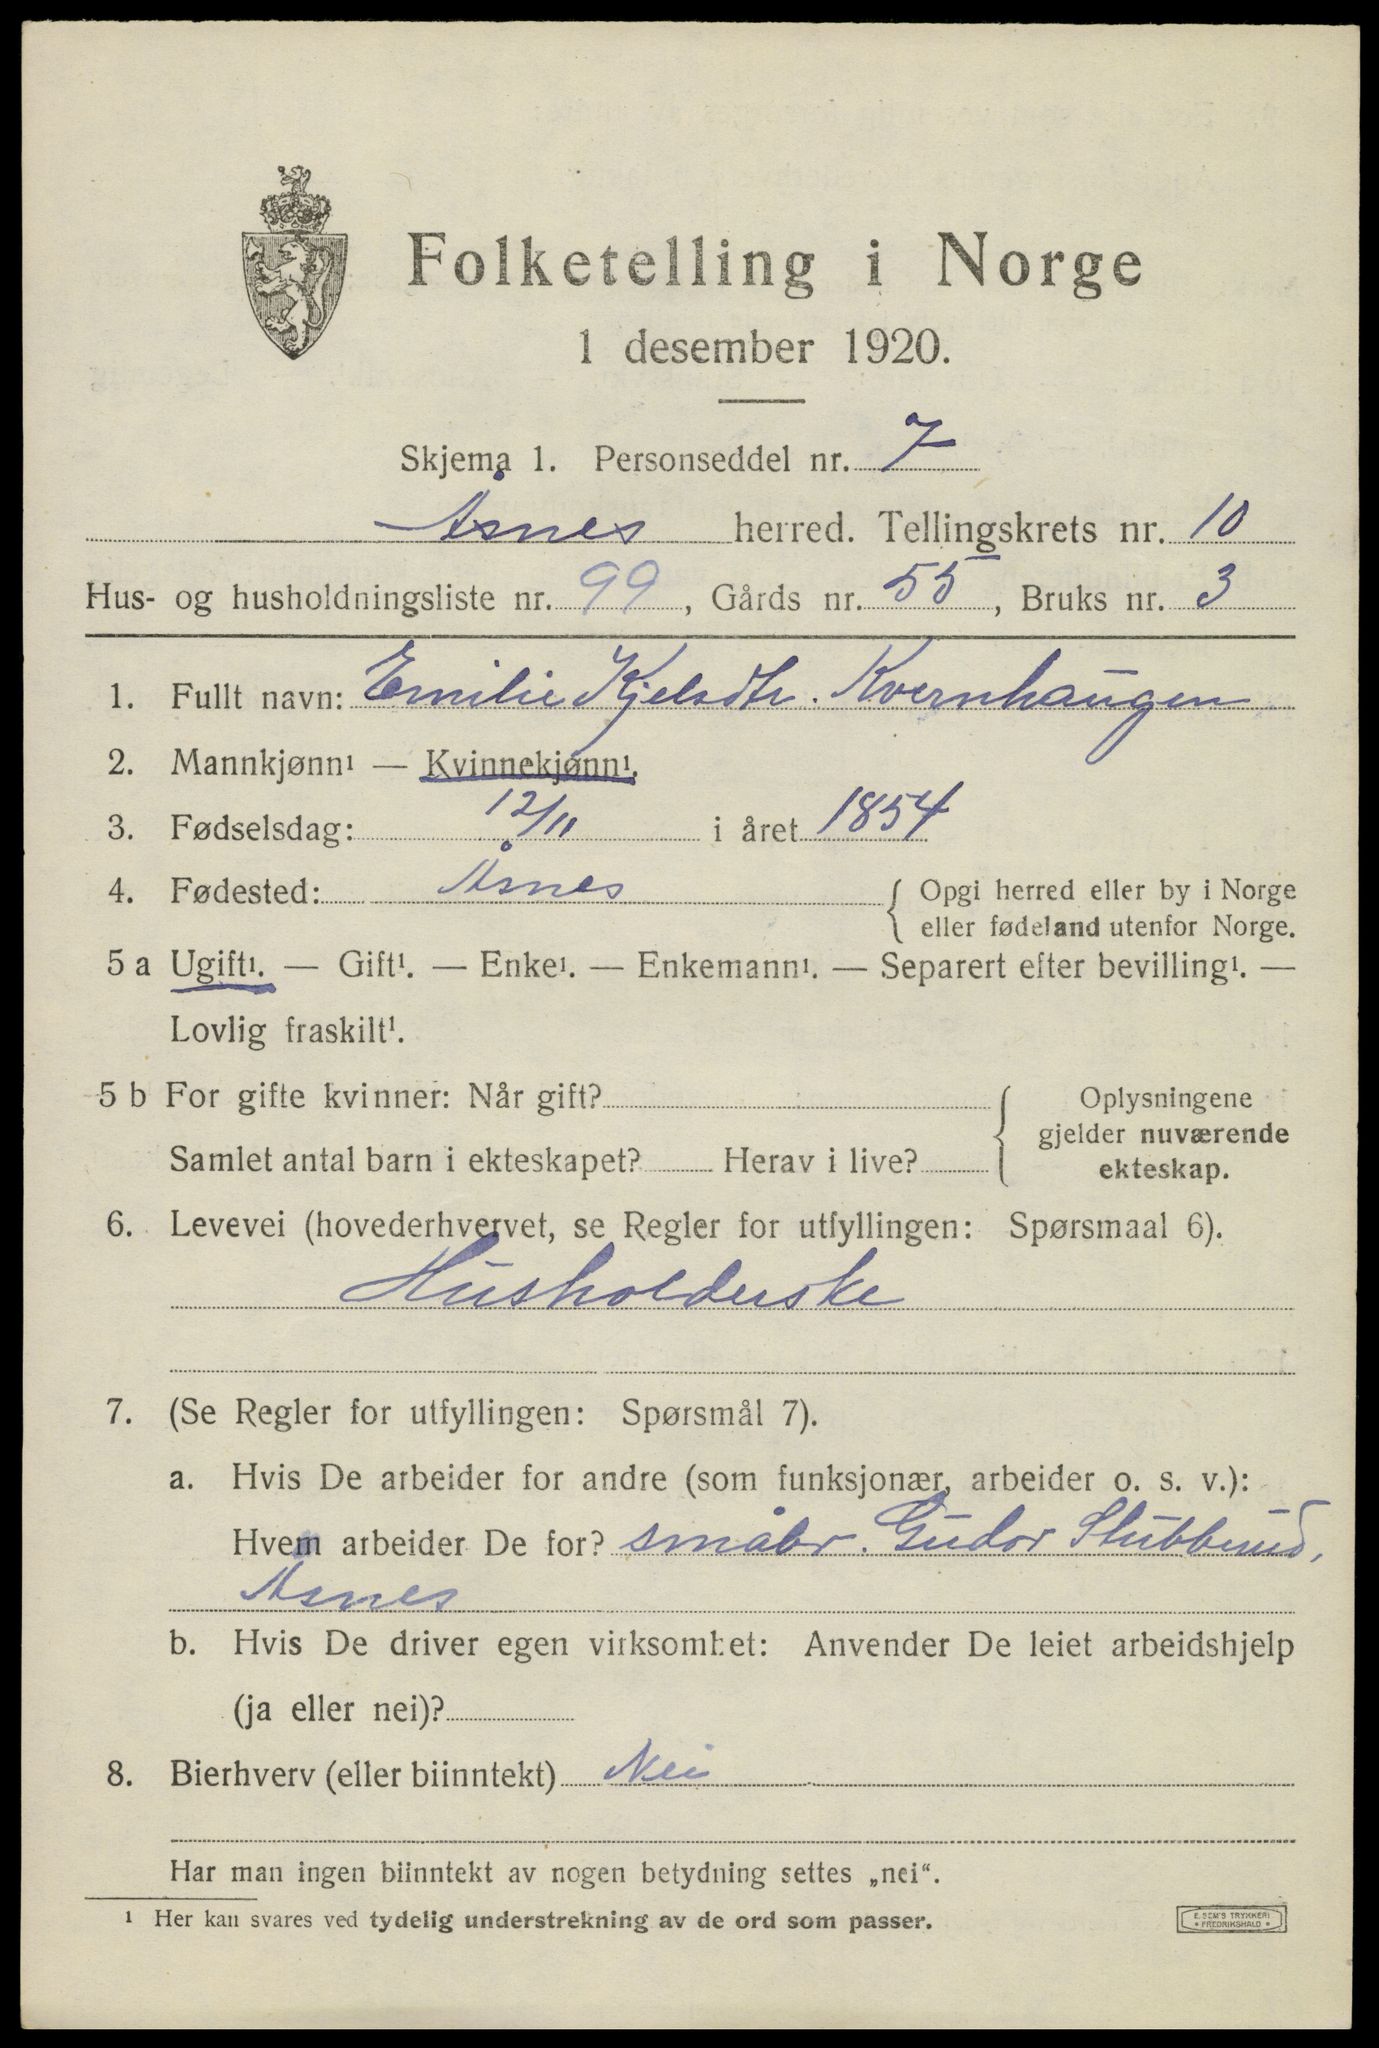 Folketelling i Norge
1 desember 1920.
Skjema 1. Personseddel nr. 7
Åsnes herred. Tellingskrets nr. 10
Hus- og husholdningsliste nr. 99, Gårds nr. 55, Bruks nr. 3
1. Fullt navn: Emilie Kjelsdtr. Kvernhaugen
2. Mannkjønn¹ — Kvinnekjønn¹.
3. Fødselsdag: 12/11 i året 1854
4. Fødested: Åsnes { Opgi herred eller by i Norge
eller fødeland utenfor Norge.
5 a Ugift¹. — Gift¹. — Enke¹. — Enkemann¹. — Separert efter bevilling¹. —
Lovlig fraskilt¹.
5 b For gifte kvinner: Når gift? { Oplysningene
gjelder nuværende
Samlet antal barn i ekteskapet? Herav i live? ekteskap.
6. Levevei (hovederhvervet, se Regler for utfyllingen: Spørsmaal 6).
Husholderske
7. (Se Regler for utfyllingen: Spørsmål 7).
a. Hvis De arbeider for andre (som funksjonær, arbeider o. s. v.):
Hvem arbeider De for? småbr. Gudor Stubberud,
Åsnes
b. Hvis De driver egen virksomhet: Anvender De leiet arbeidshjelp
(ja eller nei)?
8. Bierhverv (eller biinntekt) Nei
Har man ingen biinntekt av nogen betydning settes „nei“.
¹ Her kan svares ved tydelig understrekning av de ord som passer.
E. SEM'S TRYKKERI
• FREDRIKSHALD •